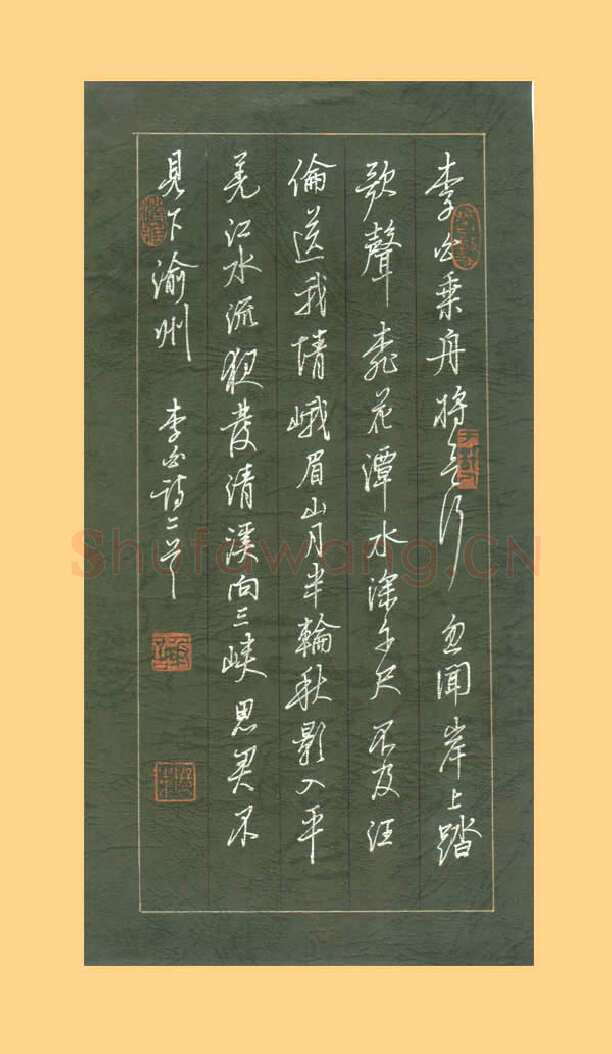 李白乘舟將欲行忽聞岸上踏
歌聲桃花潭水深千尺不及汪
倫送我情峨眉山月半輪秋影入平
羌江水流夜發清溪向三峽思君不
見下渝州 李白詩二首
Shufawang.CN